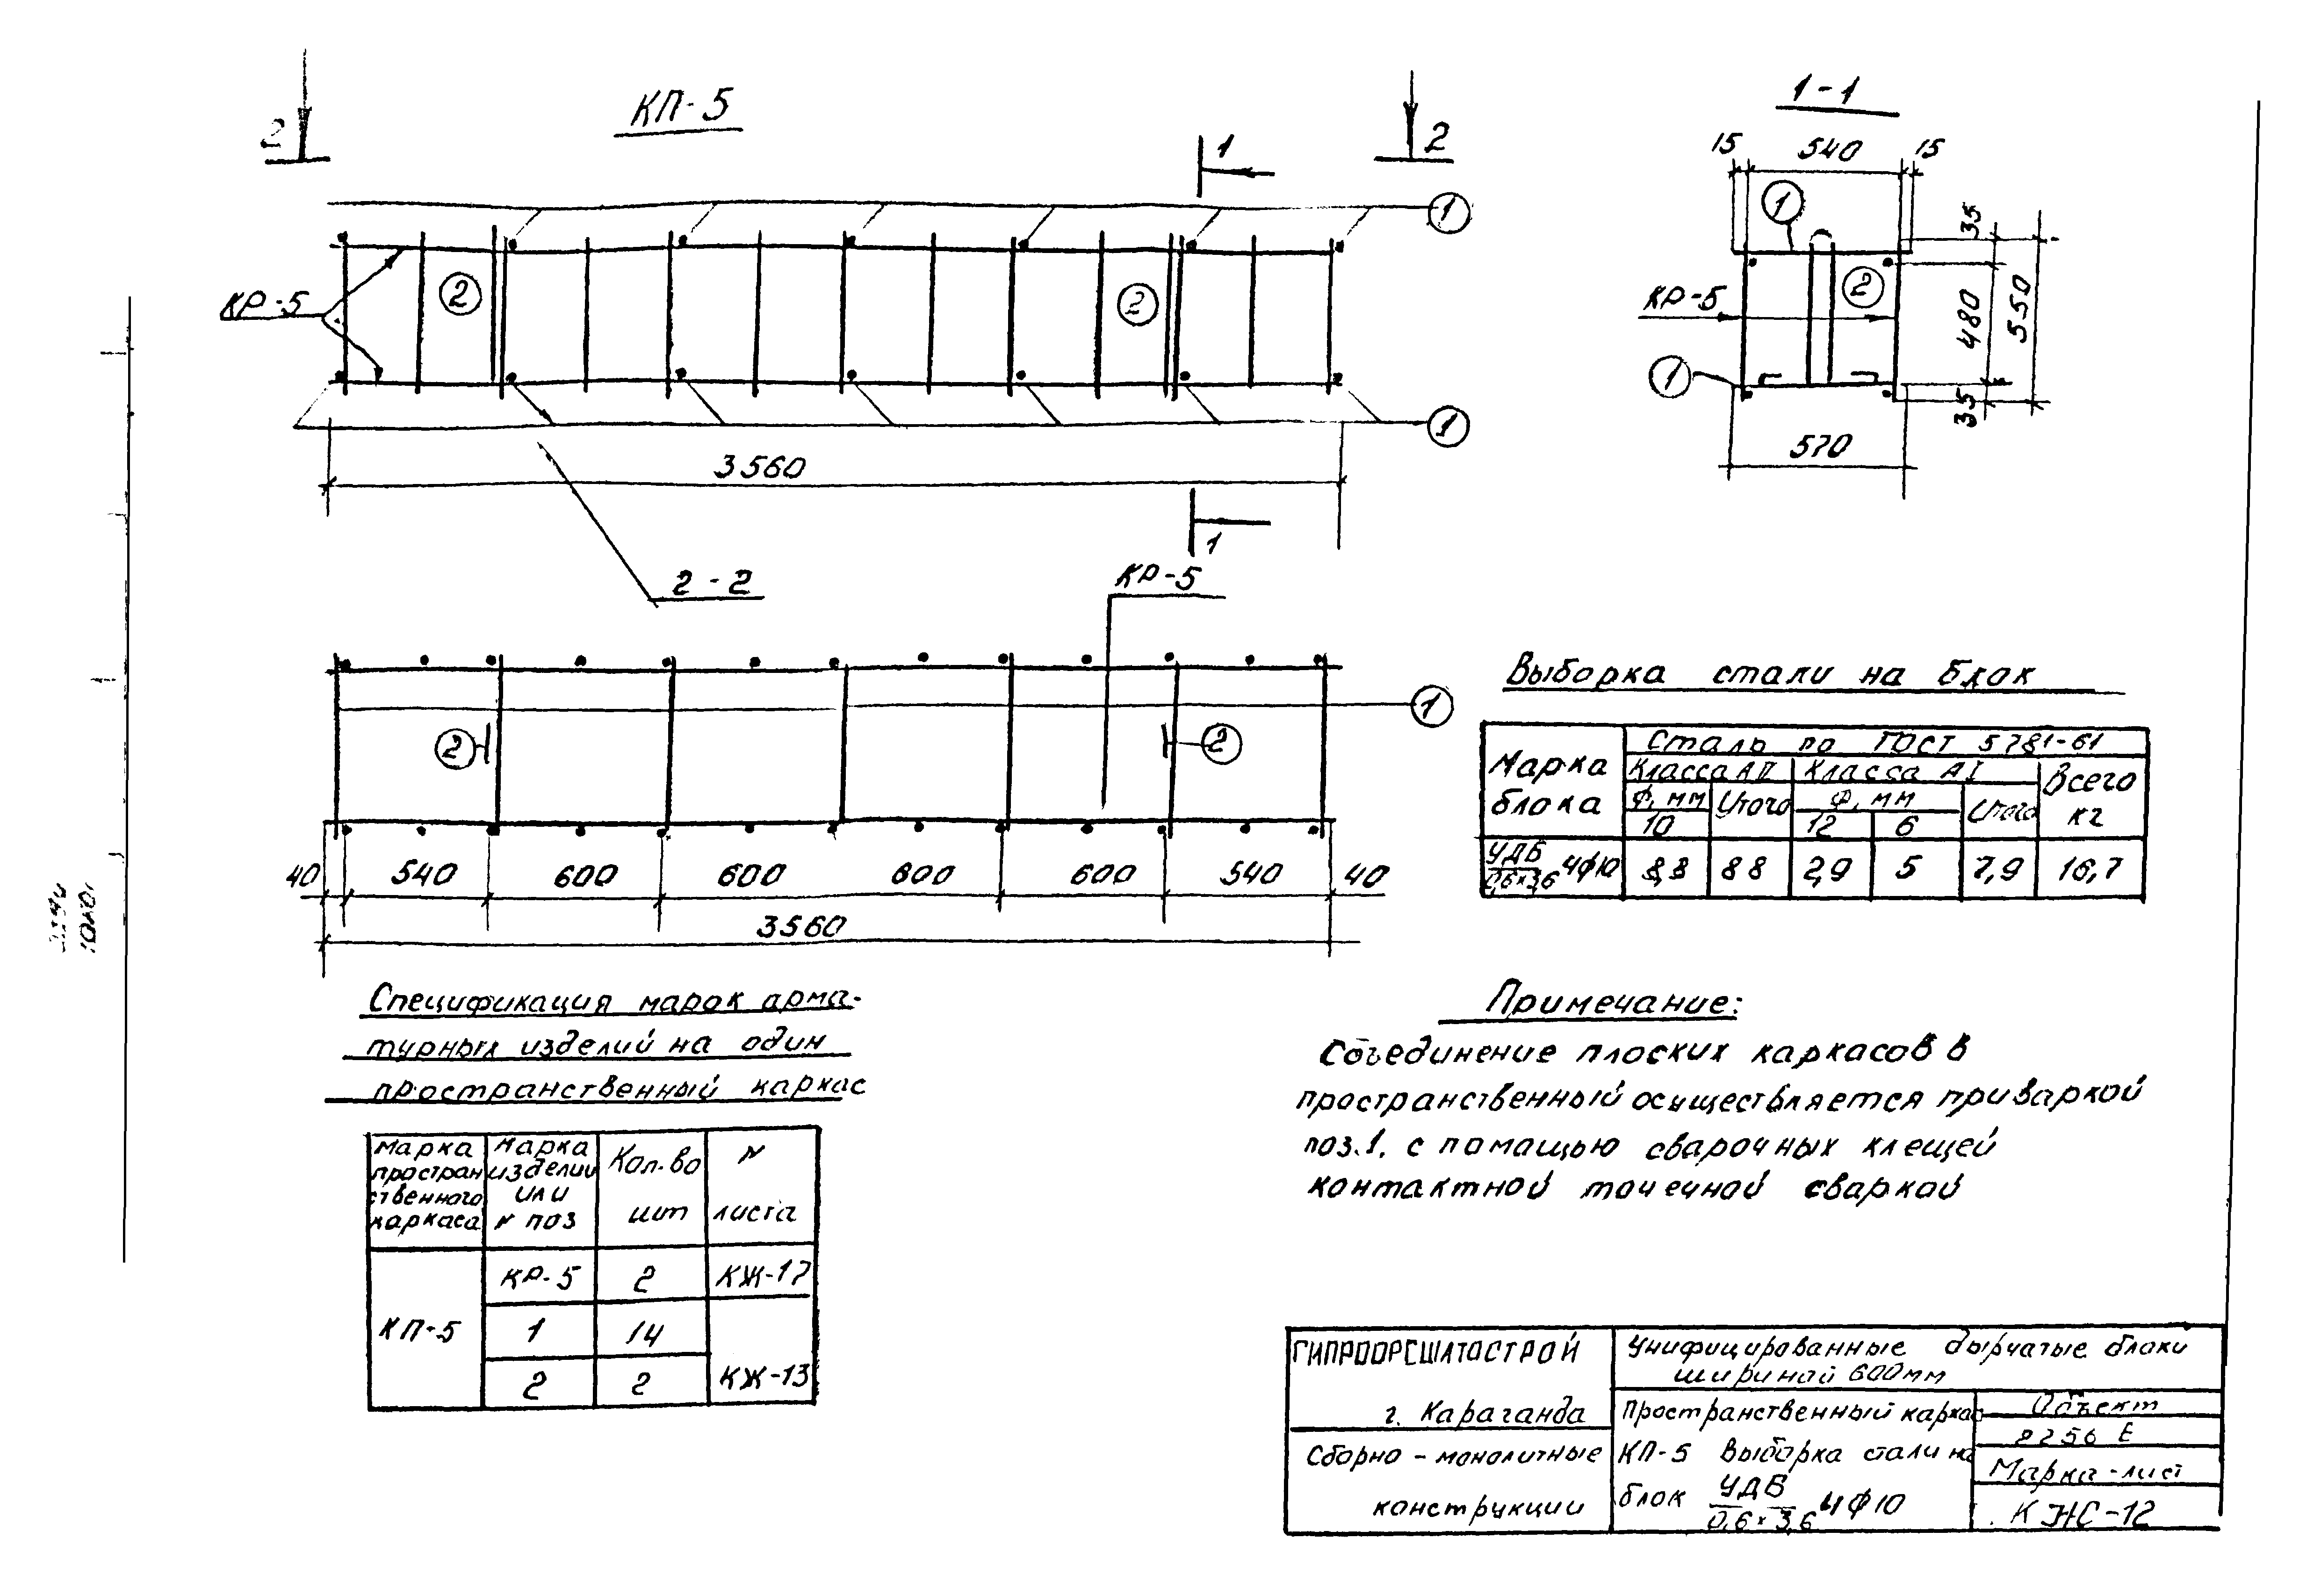 КП-5
2
2
1
1
КР-5
2
2
1
1
3560
1-1
15
540
15
1
2
КР-5
1
35
480
550
35
570
2-2
КР-5
1
2
2
40
540
600
600
600
600
540
40
3560
Выборка стали на блок
Марка блока
Сталь по ГОСТ 5781-61
Класса АII
Класса АI
Всего кг
Ф, мм
Итого
Ф, мм
Итого
10
12
6
УДБ
0,6×3,6
4Ф10
8,8
8 8
2,9
5
7,9
16,7
Спецификация марок арма-
турных изделий на один
пространственный каркас
Марка
простран
ственного
каркаса
Марка
изделии
или
N поз
Кол.во
шт
N
листа
КП-5
КР-5
2
КЖ-17
1
14
2
2
КЖ-13
Примечание:
Объединение плоских каркасов в
пространственный осуществляется приваркой
поз.1. с помащью сварочных клещей
контактной точечной сваркой
ГИПРООРГШАТОСТРОЙ
г. Караганда
Сборно-монолитные
конструкции
Унифицированные дырчатые блоки
шириной 600мм
Пространственный каркас
КП-5 Выборка стали на
блок УДБ
0,6×3,6
4Ф10
Объект
8256 Е
Марка-лист
КЖ-12